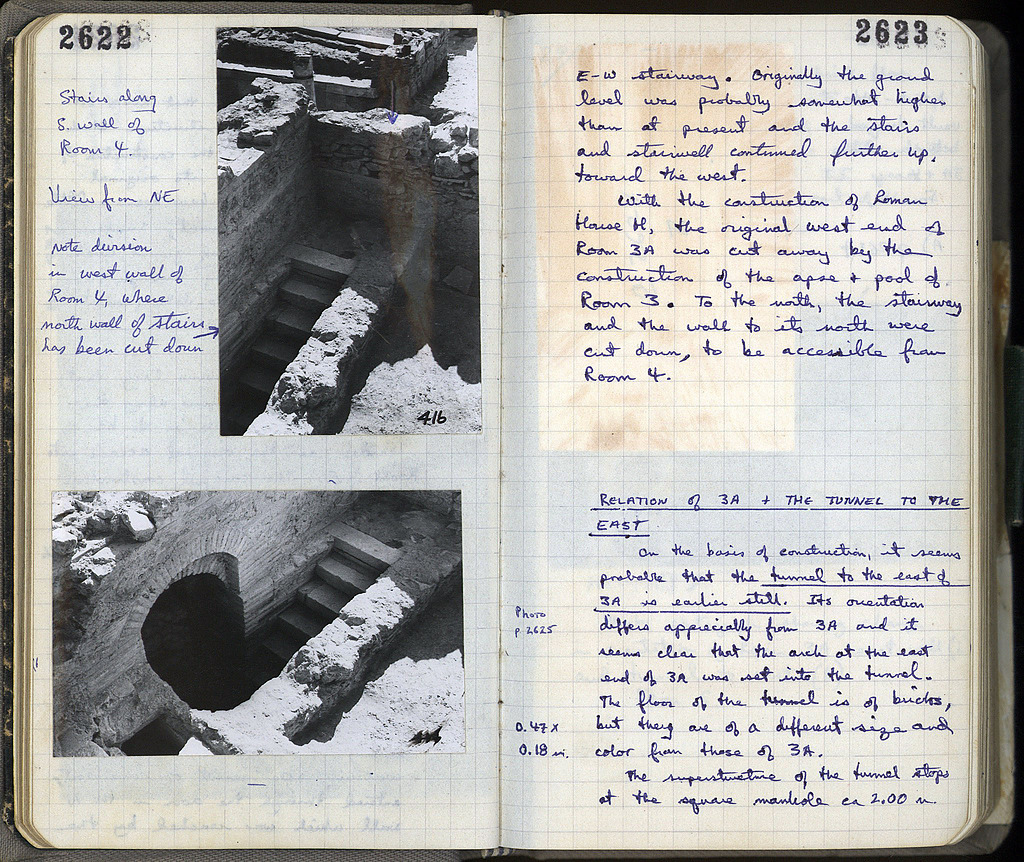 2622
Stairs along
S. wall of
Room 4.
View from NE
Note division
in west wall of
Room 4, where
north wall of stairs
has been cut down
416
2623
E-W stairway. Originally the ground
level was probably somewhat higher
than at present and the stairs
and stairwell continued further up,
toward the west.
With the construction of Roman
House H, the original west end of
Room 3A was cut away by the
construction of the apse + pool of
Room 3. To the north, the stairway
and the wall to its north were
cut down, to be accessible from
Room 4.
RELATION of 3A + THE TUNNEL TO THE
EAST
On the basis of construction, it seems
probable that the tunnel to the east of
3A is earlier still. Its orientation
differs appreciably from 3A and it
seems clear that the arch at the east
end of 3A was set into the tunnel.
The floor of the tunnel is of bricks,
but they are of a different size and
color from those of 3A.
The superstructure of the tunnel stops
at the square manhole ca 2.00 m.
Photo
p. 2625
0.47 x
0.18 m.